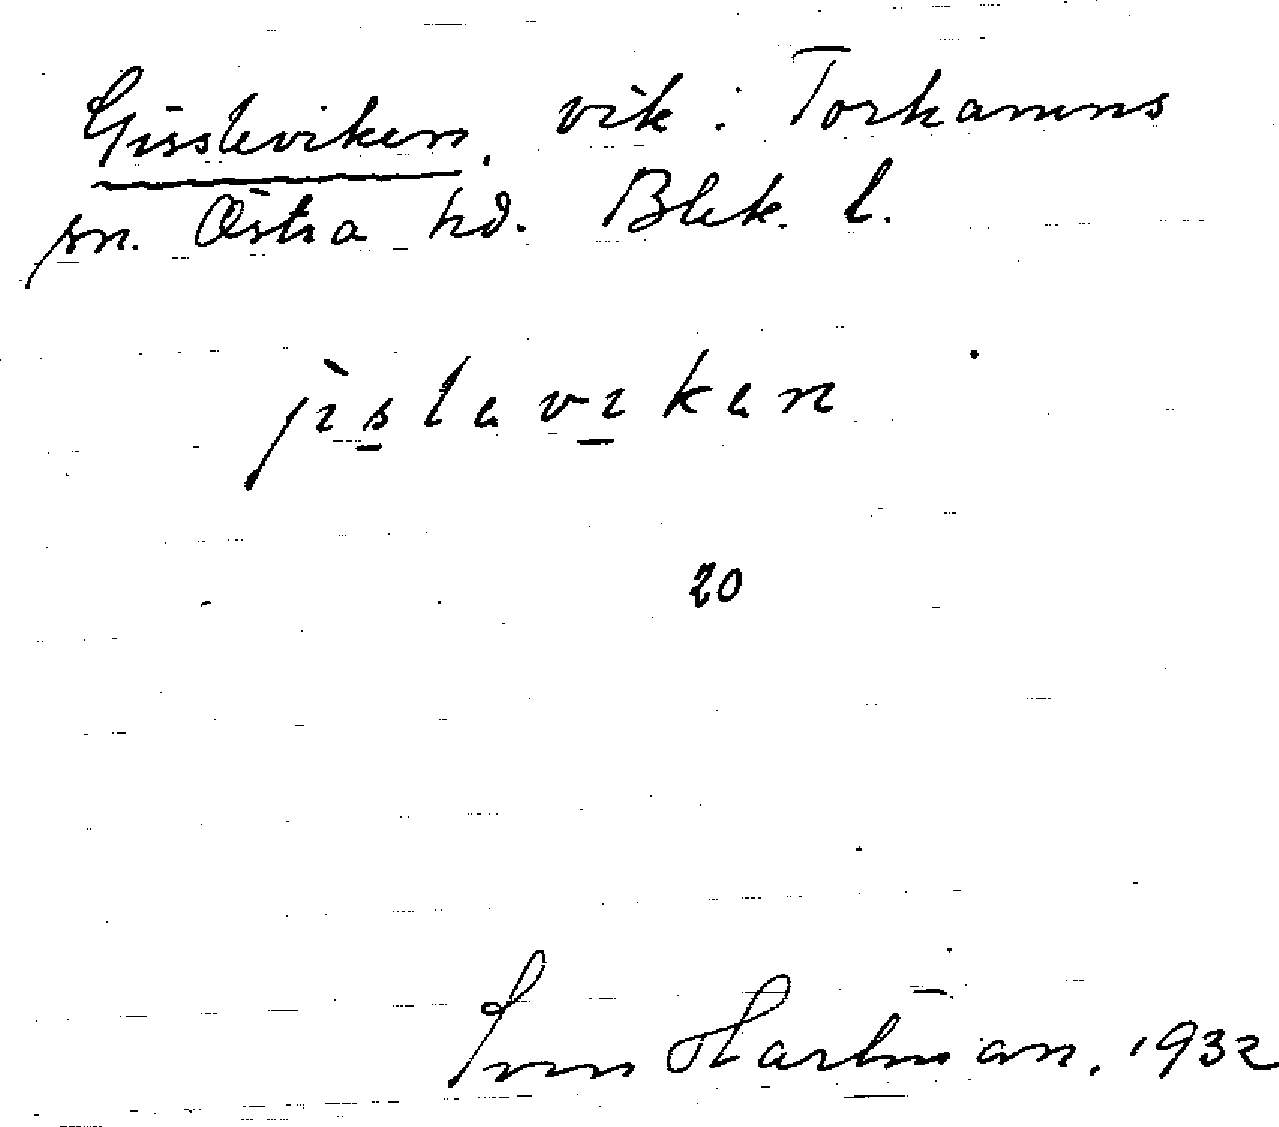 Gissleviken, vik: Torhamns
sn. Östra hd. Blek. l.
jìslavikan
20
Sven Hartman. 1932